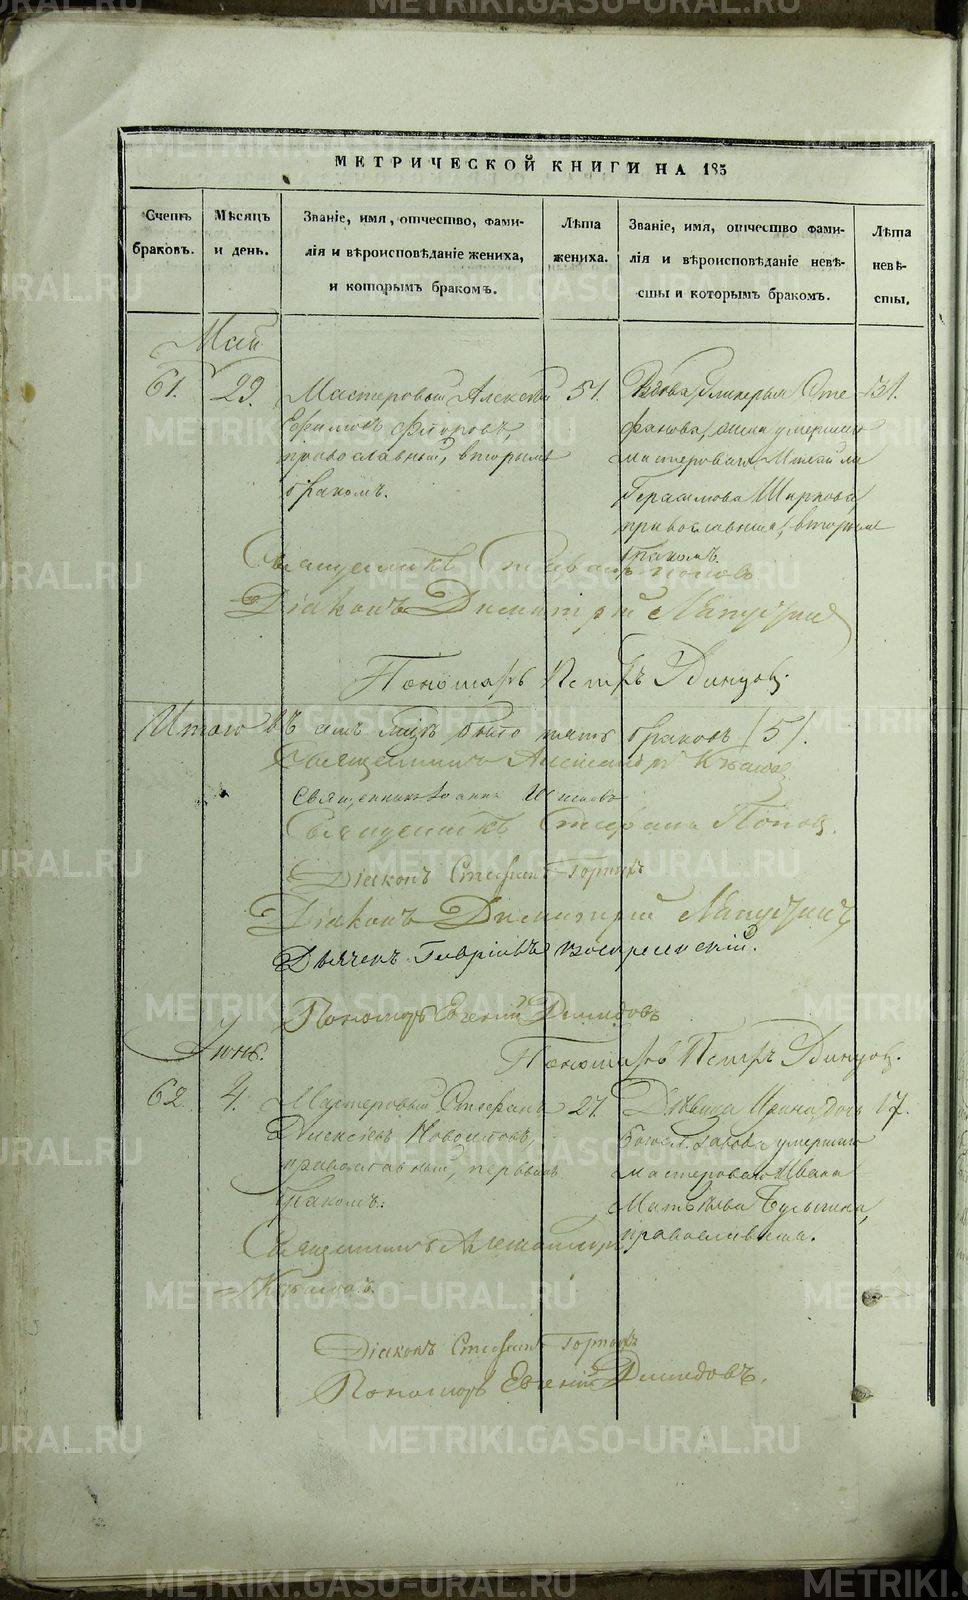 МЕТРИЧЕСКОЙ КНИГИ НА 185
Счетъ
браковъ.
Мѣсяцъ
и день.
Званіе, имя, отчество, фами-
лія и вѣроисповѣданіе жениха,
и которымъ бракомъ.
Лѣта
жениха.
Званіе, имя, отчество фами-
лія и вѣроисповѣданіе невѣ-
сты и которымъ бракомъ.
Лѣта
невѣ-
сты.
Май
61. 29. Мастеровый Алексѣй 51.
Ефимовъ
православный, вторымъ
бракомъ.
Вдова Сте-
фанова, умершаго
мастероваго
Герасимова
православная, вторымъ
бракомъ.
31.
Священникъ Стефанъ Поповъ
Діаконъ Димитрій Лапустинъ
Пономарь Петръ Одинцовъ.
Итого въ маѣ было пять браковъ /5/.
Священникъ Александръ
Священникъ Іоаннъ
Священникъ Стефанъ Поповъ.
Діаконъ Стефанъ
Діаконъ Димитрій Лапустинъ
Дьячекъ Гавріилъ Воскресенскій.
Пономарь Евгеній Демидовъ
Пономарь Петръ Одинцовъ.
Іюнь.
62 4. Мастеровый Стефанъ 21.
Алексѣевъ
православный, первымъ
бракомъ.
Дѣвица Ирина, дочь 17.
умершаго
мастероваго Ивана
Матвѣева Булыгина,
православная.
Священникъ Александръ
Діаконъ Стефанъ
Пономарь Евгеній Демидовъ.
METRIKI.GASO-URAL.RU